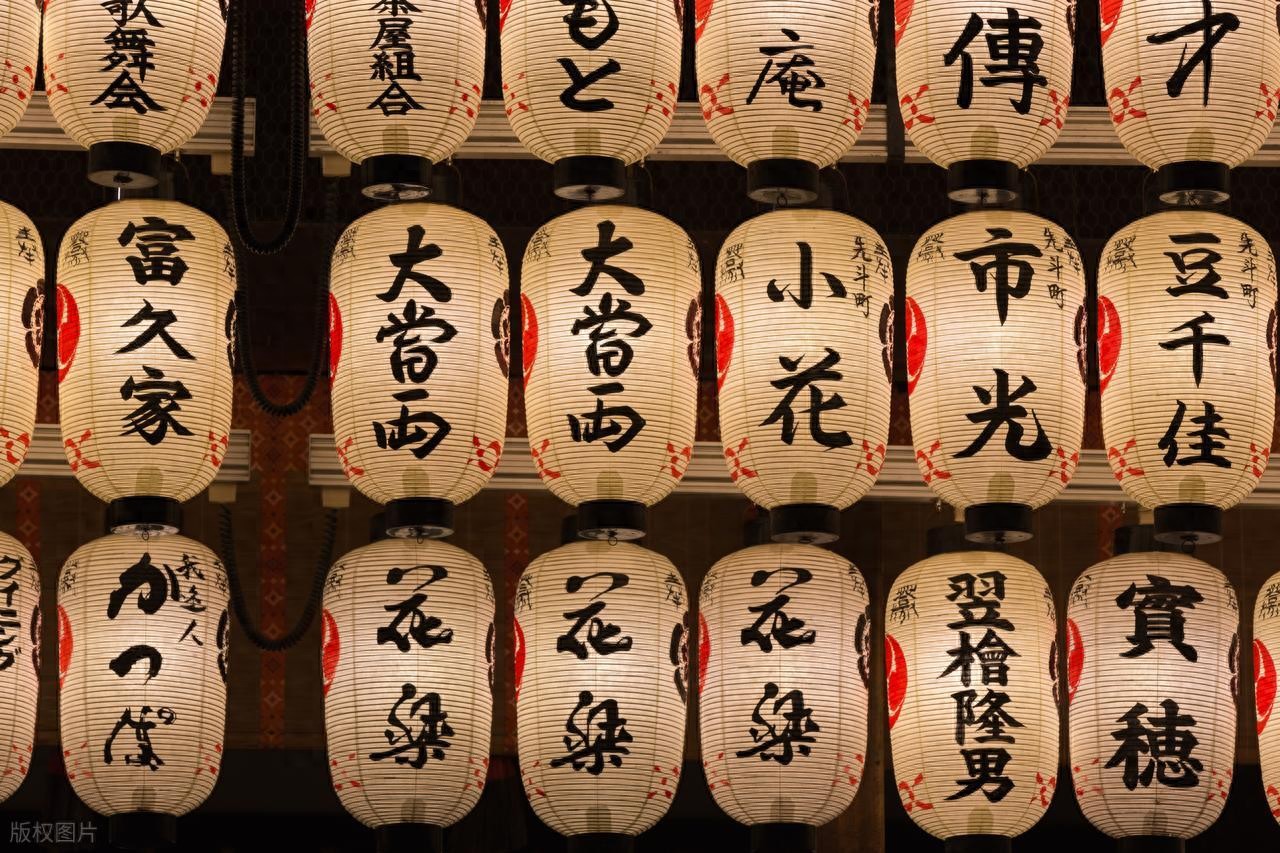 歌舞会
茶屋組合
もと
庵
傳
才
富久家
大當両
大當両
小花
先斗町
市光
先斗町
豆千佳
先斗町
かつぱ
花梁
花梁
花梁
翌檜隆男
實穂
版权图片